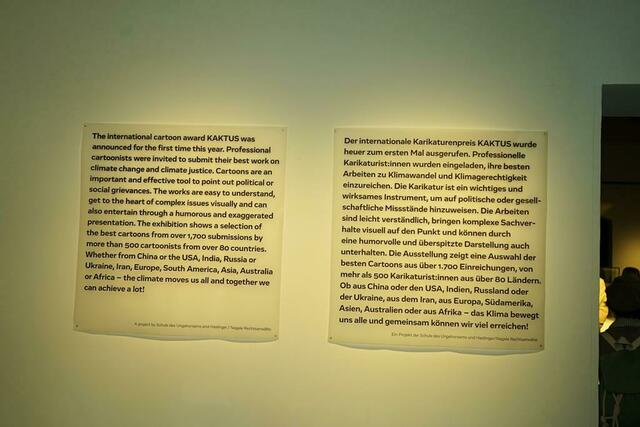 The international cartoon award KAKTUS was
announced for the first time this year. Professional
cartoonists were invited to submit their best work on
climate change and climate justice. Cartoons are an
important and effective tool to point out political or
social grievances. The works are easy to understand,
get to the heart of complex issues visually and can
also entertain through a humorous and exaggerated
presentation. The exhibition shows a selection of
the best cartoons from over 1,700 submissions by
more than 500 cartoonists from over 80 countries.
Whether from China or the USA, India, Russia or
Ukraine, Iran, Europe, South America, Asia, Australia
or Africa – the climate moves us all and together we
can achieve a lot!
A project by Schule des Ungehorsams and Haslinger / Nagele Rechtsanwälte.
Der internationale Karikaturenpreis KAKTUS wurde
heuer zum ersten Mal ausgerufen. Professionelle
Karikaturist:innen wurden eingeladen, ihre besten
Arbeiten zu Klimawandel und Klimagerechtigkeit
einzureichen. Die Karikatur ist ein wichtiges und
wirksames Instrument, um auf politische oder gesell-
schaftliche Missstände hinzuweisen. Die Arbeiten
sind leicht verständlich, bringen komplexe Sachver-
halte visuell auf den Punkt und können durch
eine humorvolle und überspitzte Darstellung auch
unterhalten. Die Ausstellung zeigt eine Auswahl der
besten Cartoons aus über 1.700 Einreichungen, von
mehr als 500 Karikaturist:innen aus über 80 Ländern.
Ob aus China oder den USA, Indien, Russland oder
der Ukraine, aus dem Iran, aus Europa, Südamerika,
Asien, Australien oder aus Afrika – das Klima bewegt
uns alle und gemeinsam können wir viel erreichen!
Ein Projekt der Schule des Ungehorsams und Haslinger/Nagele Rechtsanwälte.